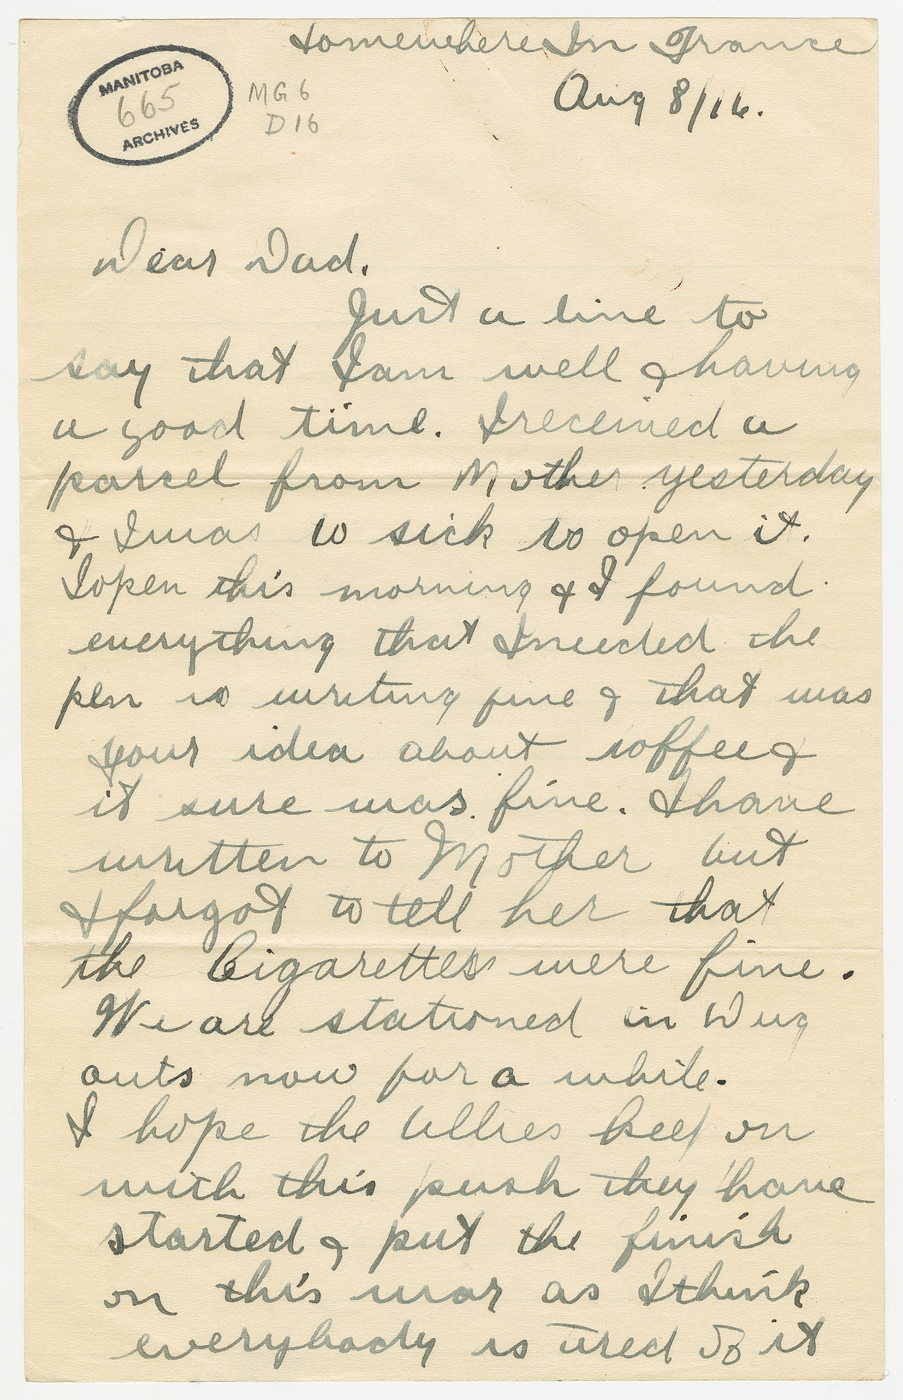 Somewhere In France
Aug 8/16.
MANITOBA
665
ARCHIVES
MG6
D16
Dear Dad.
Just a line to
say that I am well & having
a good time. I received a
parcel from Mother yesterday
& I was to sick to open it.
I open this morning & I found
everything that I needed the
pen is writing fine & that was
your idea about coffee &
it sure was fine. I have
written to Mother but
I forgot to tell her that
the Cigarettes were fine.
We are stationed in Dug
outs now for a while.
I hope the Allies keep on
with this push they have
started & put the finish
on this war as I think
everybody is tired of it